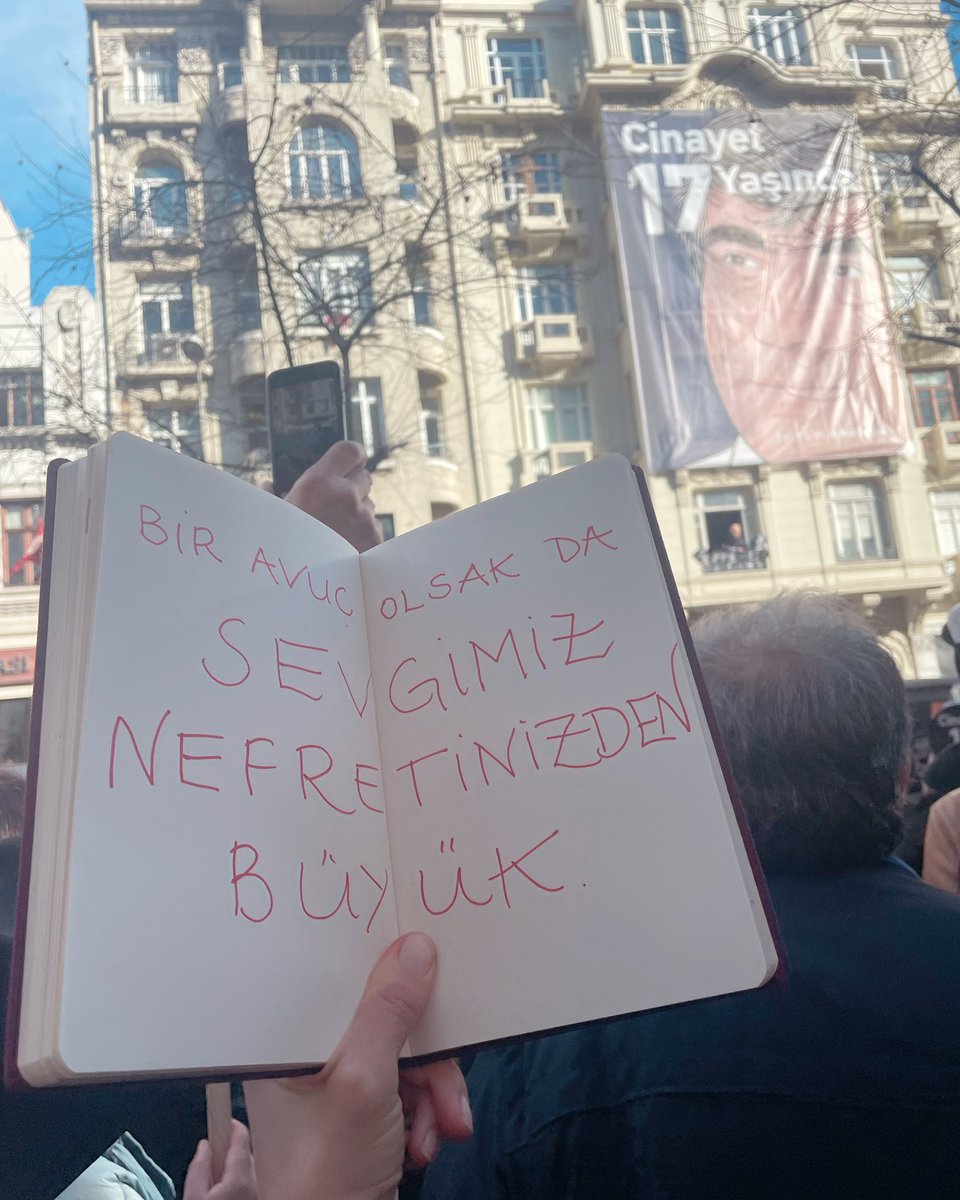 Cinayet
17 Yaşında
BİR AVUÇ OLSAK DA
SEVGİMİZ
NEFRETİNİZDEN
BÜYÜK.